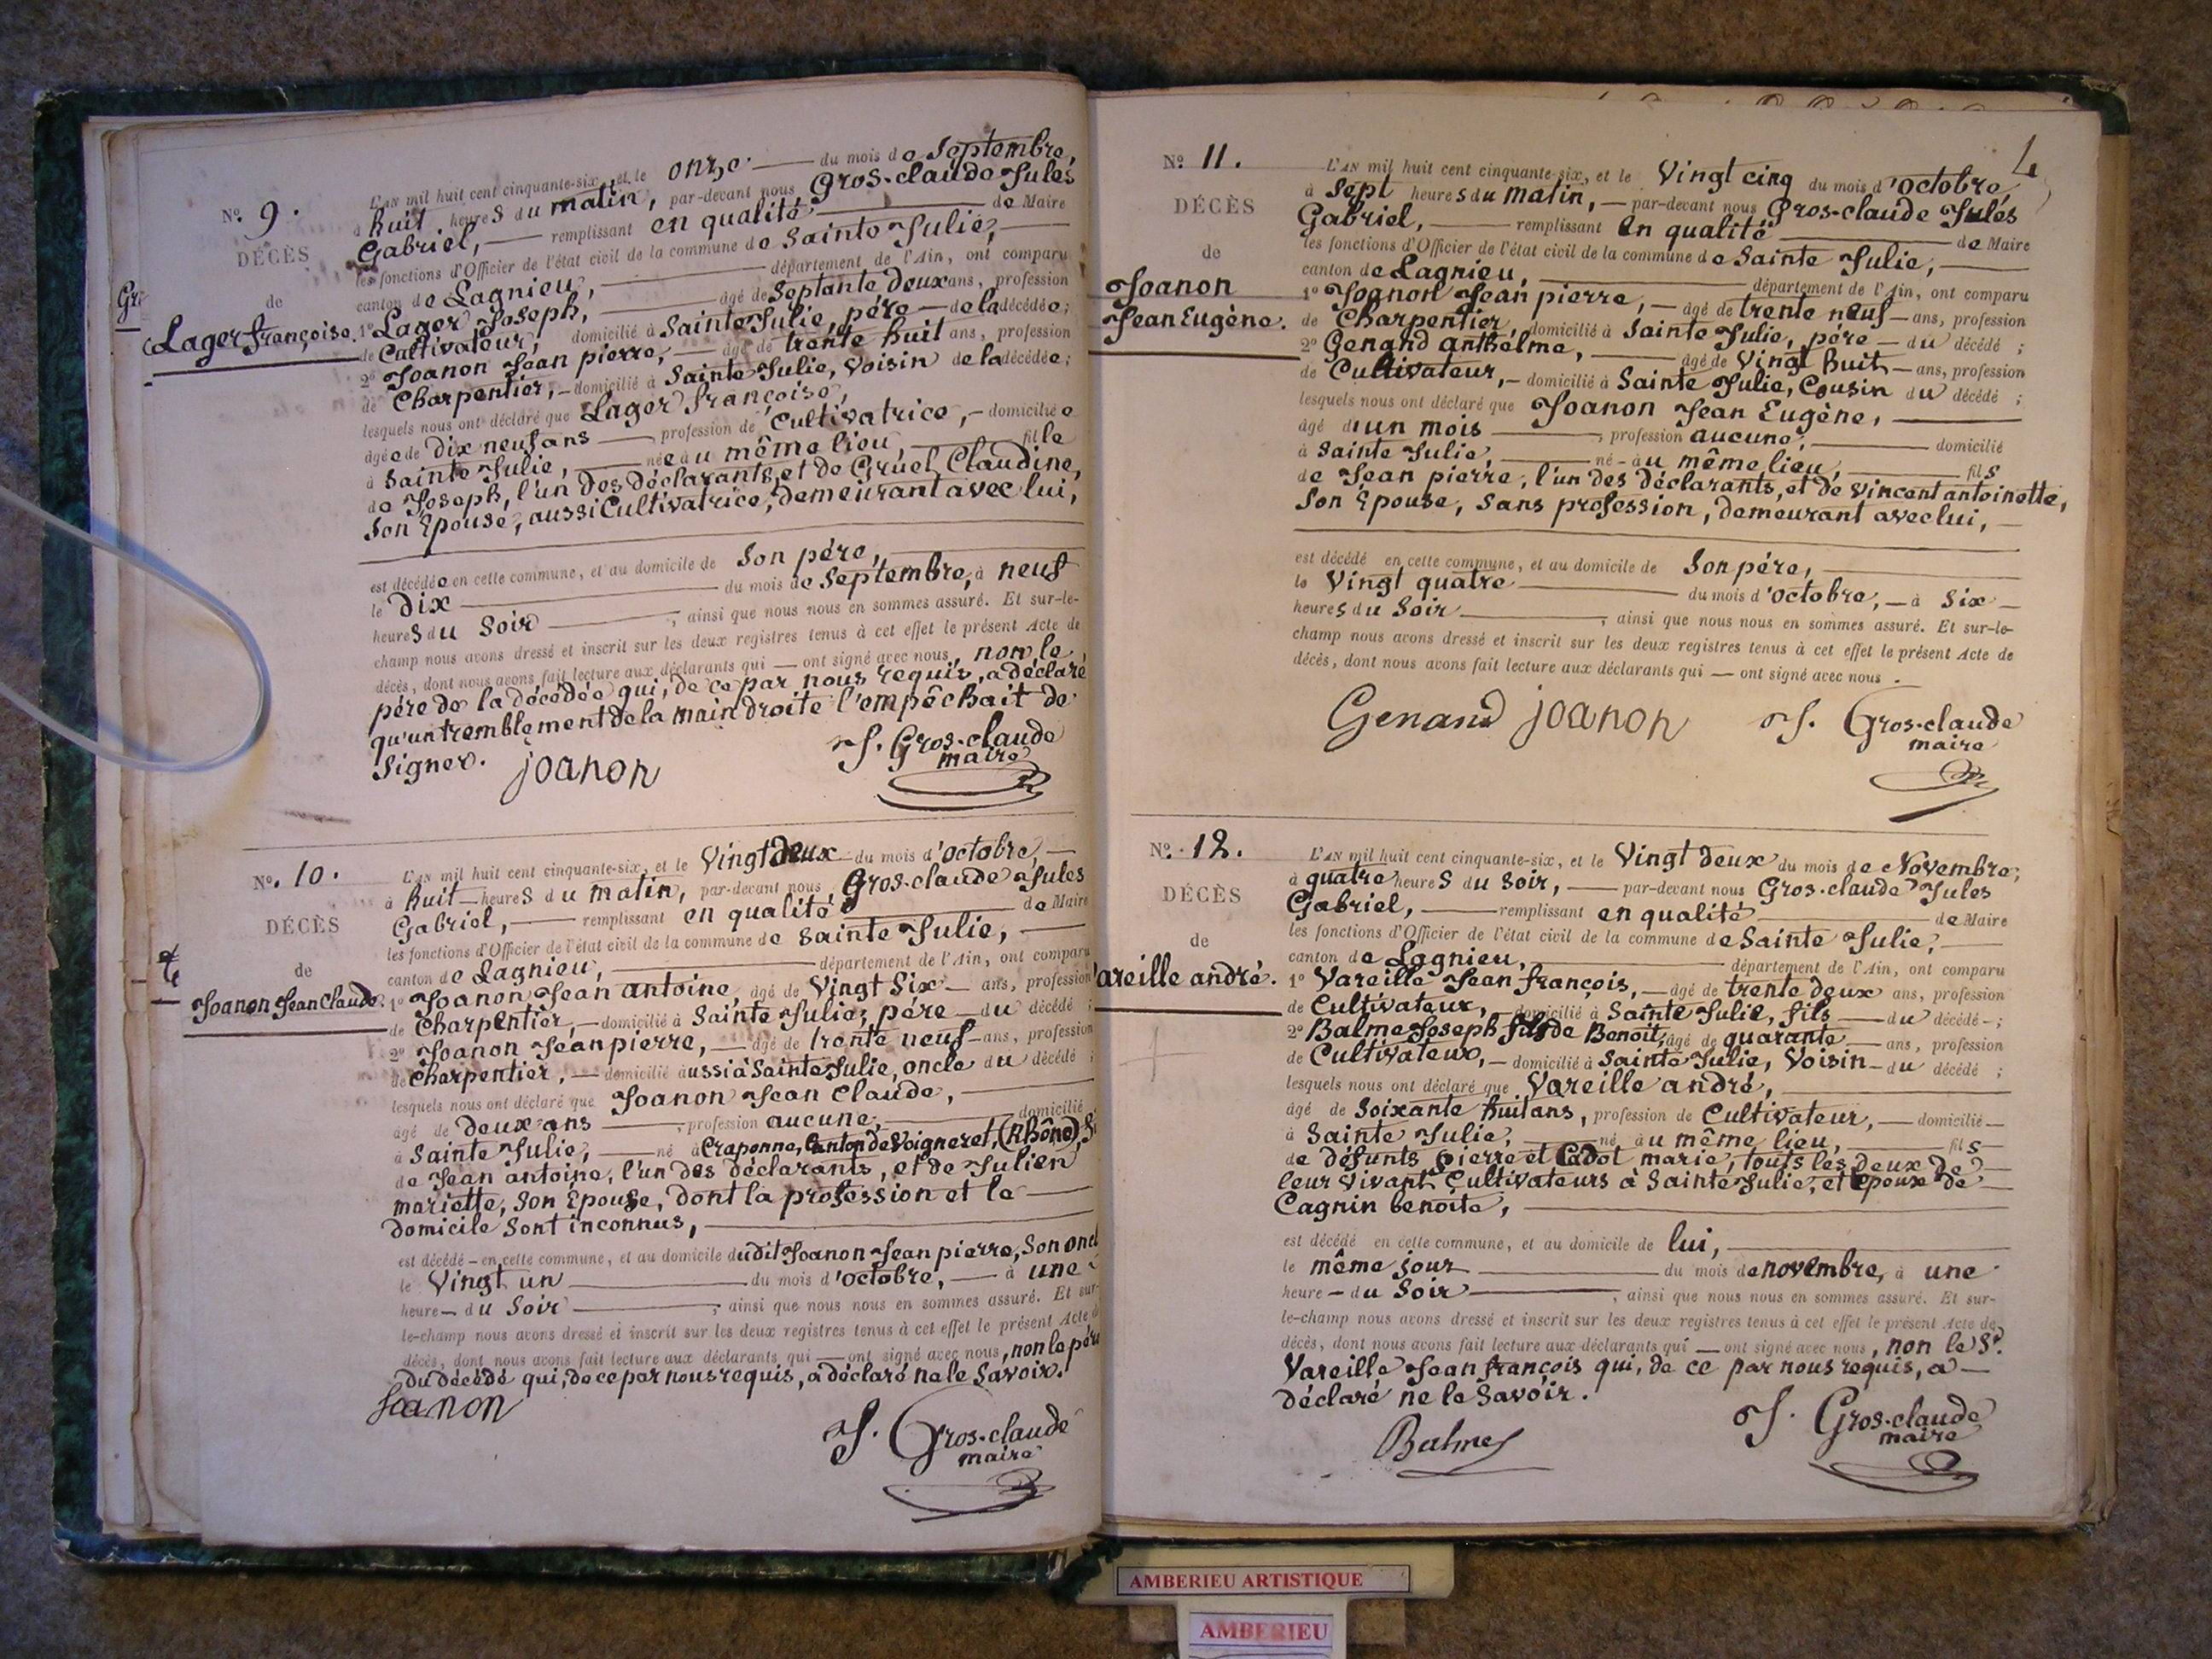 Nº. 9.
DÉCÈS
de
Lager françoise.
L'AN mil huit cent cinquante-six, et le onze du mois de Septembre,
à huit heures du matin, par-devant nous Gros-claude Jules
Gabriel, remplissant en qualité de Maire
les fonctions d'Officier de l'état civil de la commune de Sainte Julie,
canton de Lagnieu, département de l'Ain, ont comparu
1º Lager Joseph, âgé de Septante deux ans, profession
de Cultivateur, domicilié à Sainte Julie, père de la décédée;
2º Joanon Jean pierre, âgé de trente huit ans, profession
de Charpentier, domicilié à Sainte Julie, Voisin de la décédée;
lesquels nous ont déclaré que Lager françoise,
âgée de dix neuf ans profession de Cultivatrice, domiciliée
à Sainte Julie, née au même lieu, fille
de Joseph, l'un des déclarants, et de Gruel Claudine,
Son Epouse, aussi Cultivatrice, demeurant avec lui,
est décédée en cette commune, et au domicile de Son père,
le dix du mois de Septembre, à neuf
heures du Soir, ainsi que nous nous en sommes assuré. Et sur-le-
champ nous avons dressé et inscrit sur les deux registres tenus à cet effet le présent Acte de
décès, dont nous avons fait lecture aux déclarants qui — ont signé avec nous, non le
père de la décédée qui, de ce par nous requis, a déclaré
qu'un tremblement de la main droite l'empêchait de
Signer. joanon J. Gros-claude
maire
Nº. 10.
DÉCÈS
de
Joanon Jean Claude.
L'AN mil huit cent cinquante-six, et le Vingt deux du mois d'octobre,
à huit heures du matin, par-devant nous Gros-claude Jules
Gabriel, remplissant en qualité de Maire
les fonctions d'Officier de l'état civil de la commune de Sainte Julie,
canton de Lagnieu, département de l'Ain, ont comparu
1º Joanon Jean antoine âgé de Vingt Six ans, profession
de Charpentier, domicilié à Sainte Julie, père du décédé;
2º Joanon Jean pierre, âgé de trente neuf ans, profession
de Charpentier, domicilié aussi à Sainte Julie, oncle du décédé;
lesquels nous ont déclaré que Joanon Jean Claude,
âgé de deux ans, profession aucune, domicilié
à Sainte Julie, né à Craponne, Canton de Voigneret, (Rhône),
de Jean antoine, l'un des déclarants, et de Julien
mariette, Son Epouse, dont la profession et le
domicile Sont inconnus,
est décédé en cette commune, et au domicile dudit Joanon Jean pierre, Son oncl
le Vingt un du mois d'octobre, à une
heure du Soir, ainsi que nous nous en sommes assuré. Et sur-
le-champ nous avons dressé et inscrit sur les deux registres tenus à cet effet le présent Acte de
décès, dont nous avons fait lecture aux déclarants qui — ont signé avec nous, non le père
du décédé qui, de ce par nous requis, a déclaré ne le Savoir.
Joanon J. Gros-claude
maire
4
Nº. 11.
DÉCÈS
de
Joanon
Jean Eugène.
L'AN mil huit cent cinquante-six, et le Vingt cinq du mois d'octobre,
à Sept heures du matin, par-devant nous Gros-claude Jules
Gabriel, remplissant en qualité de Maire
les fonctions d'Officier de l'état civil de la commune de Sainte Julie,
canton de Lagnieu, département de l'Ain, ont comparu
1º Joanon Jean pierre, âgé de trente neuf ans, profession
de Charpentier, domicilié à Sainte Julie, père du décédé;
2º Genand anthelme, âgé de Vingt huit ans, profession
de Cultivateur, domicilié à Sainte Julie, Cousin du décédé;
lesquels nous ont déclaré que Joanon Jean Eugène,
âgé d'un mois, profession aucune, domicilié
à Sainte Julie, né au même lieu, fils
de Jean pierre, l'un des déclarants, et de Vincent antoinette,
Son Epouse, Sans profession, demeurant avec lui,
est décédé en cette commune, et au domicile de Son père,
le Vingt quatre du mois d'octobre, à Six
heures du Soir, ainsi que nous nous en sommes assuré. Et sur-le-
champ nous avons dressé et inscrit sur les deux registres tenus à cet effet le présent Acte de
décès, dont nous avons fait lecture aux déclarants qui — ont signé avec nous.
Genand joanon J. Gros-claude
maire
Nº. 12.
DÉCÈS
de
Vareille andré.
L'AN mil huit cent cinquante-six, et le Vingt deux du mois de Novembre;
à quatre heures du Soir, par-devant nous Gros-claude Jules
Gabriel, remplissant en qualité de Maire
les fonctions d'Officier de l'état civil de la commune de Sainte Julie,
canton de Lagnieu, département de l'Ain, ont comparu
1º Vareille Jean françois, âgé de trente deux ans, profession
de Cultivateur, domicilié à Sainte Julie, fils du décédé;
2º Balme Joseph fils de Benoit, âgé de quarante ans, profession
de Cultivateur, domicilié à Sainte Julie, Voisin du décédé;
lesquels nous ont déclaré que Vareille andré,
âgé de Soixante huit ans, profession de Cultivateur, domicilié
à Sainte Julie, né au même lieu, fils
de défunts pierre et Cadot marie, touts les deux de
leur Vivant Cultivateurs à Sainte Julie, et Epoux de
Cagnin benoite,
est décédé en cette commune, et au domicile de lui,
le même jour du mois de novembre, à une
heure du Soir, ainsi que nous nous en sommes assuré. Et sur-
le-champ nous avons dressé et inscrit sur les deux registres tenus à cet effet le présent Acte de
décès, dont nous avons fait lecture aux déclarants qui — ont signé avec nous, non le Sr.
Vareille Jean françois qui, de ce par nous requis, a
déclaré ne le Savoir.
Balme J. Gros-claude
maire
AMBERIEU ARTISTIQUE
AMBERIEU